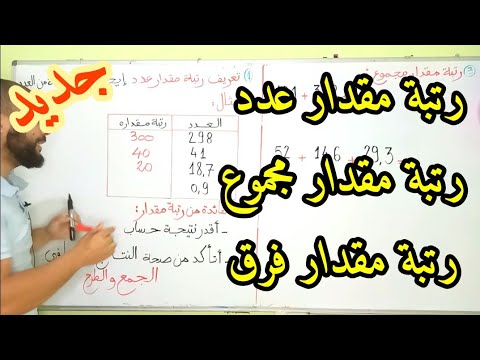 جديد
رتبة مقدار عدد
رتبة مقدار مجموع
رتبة مقدار فرق
① تعريف رتبة مقدار عدد
③ رتبة مقدار مجموع:
العدد رتبة مقداره
298 300
41 40
18,7 20
0,9
52 + 14,6 + 29,3
من رتبة مقدار:
- أقدر نتيجة حساب
- أتأكد من صحة
الجمع والطرح